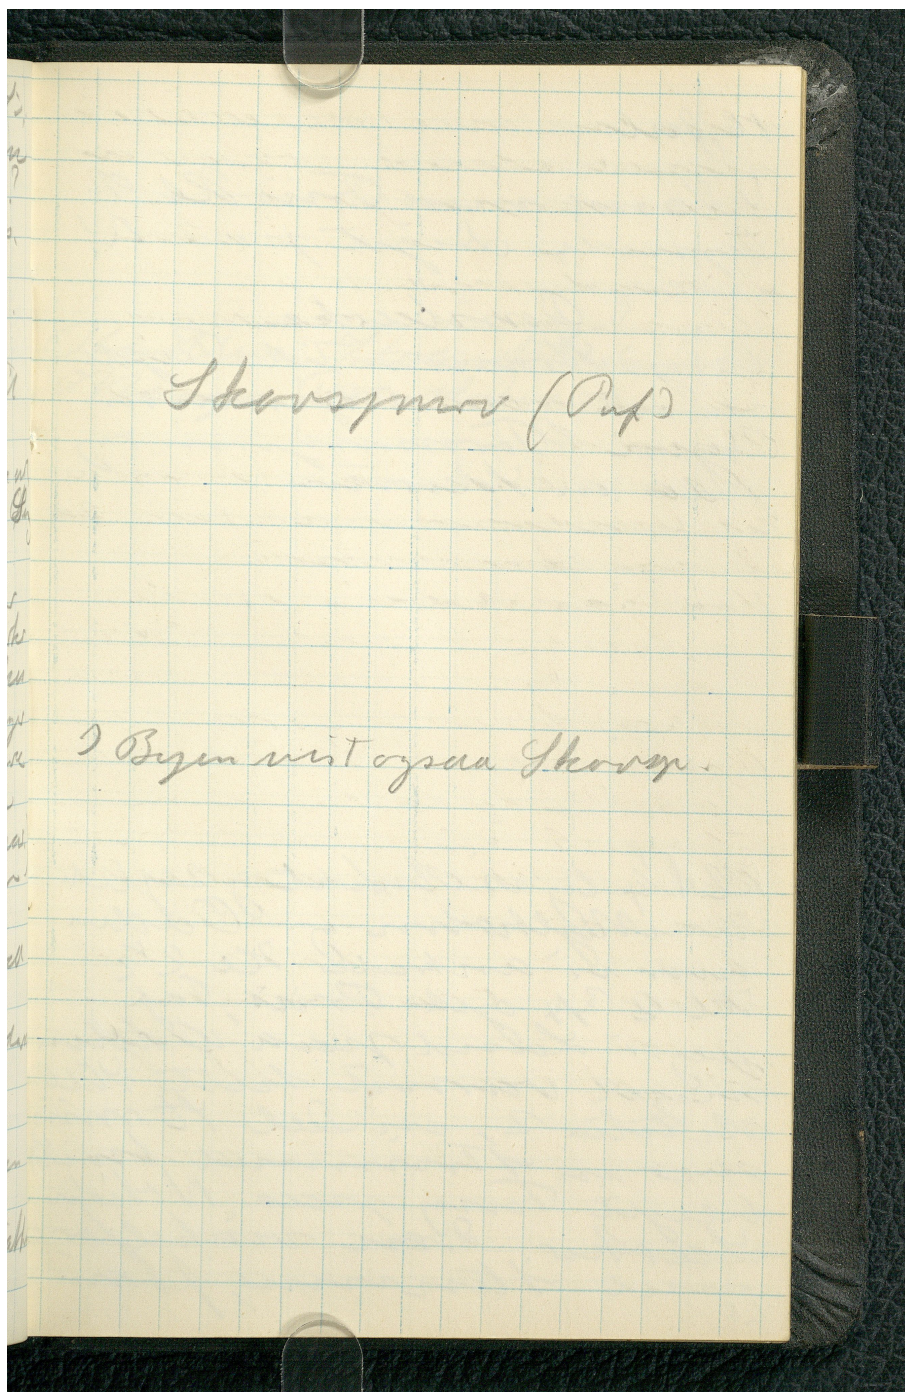 Skovspurv (Puf)
I Byen vist ogsaa Skovsp.